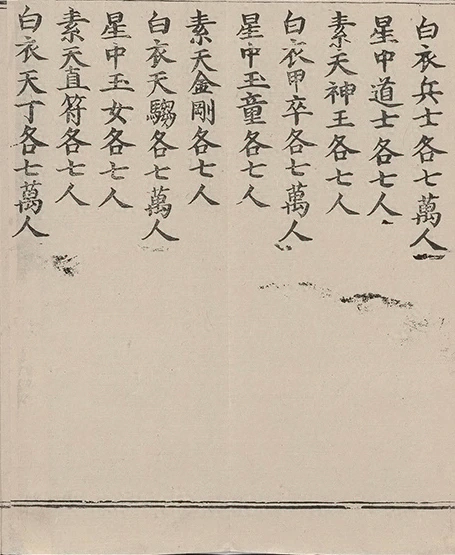 白衣兵士各七萬人
星中道士各七人
素天神王各七人
白衣甲卒各七萬人
星中玉童各七人
素天金剛各七人
白衣天騶各七萬人
星中玉女各七人
素天直符各七人
白衣天丁各七萬人